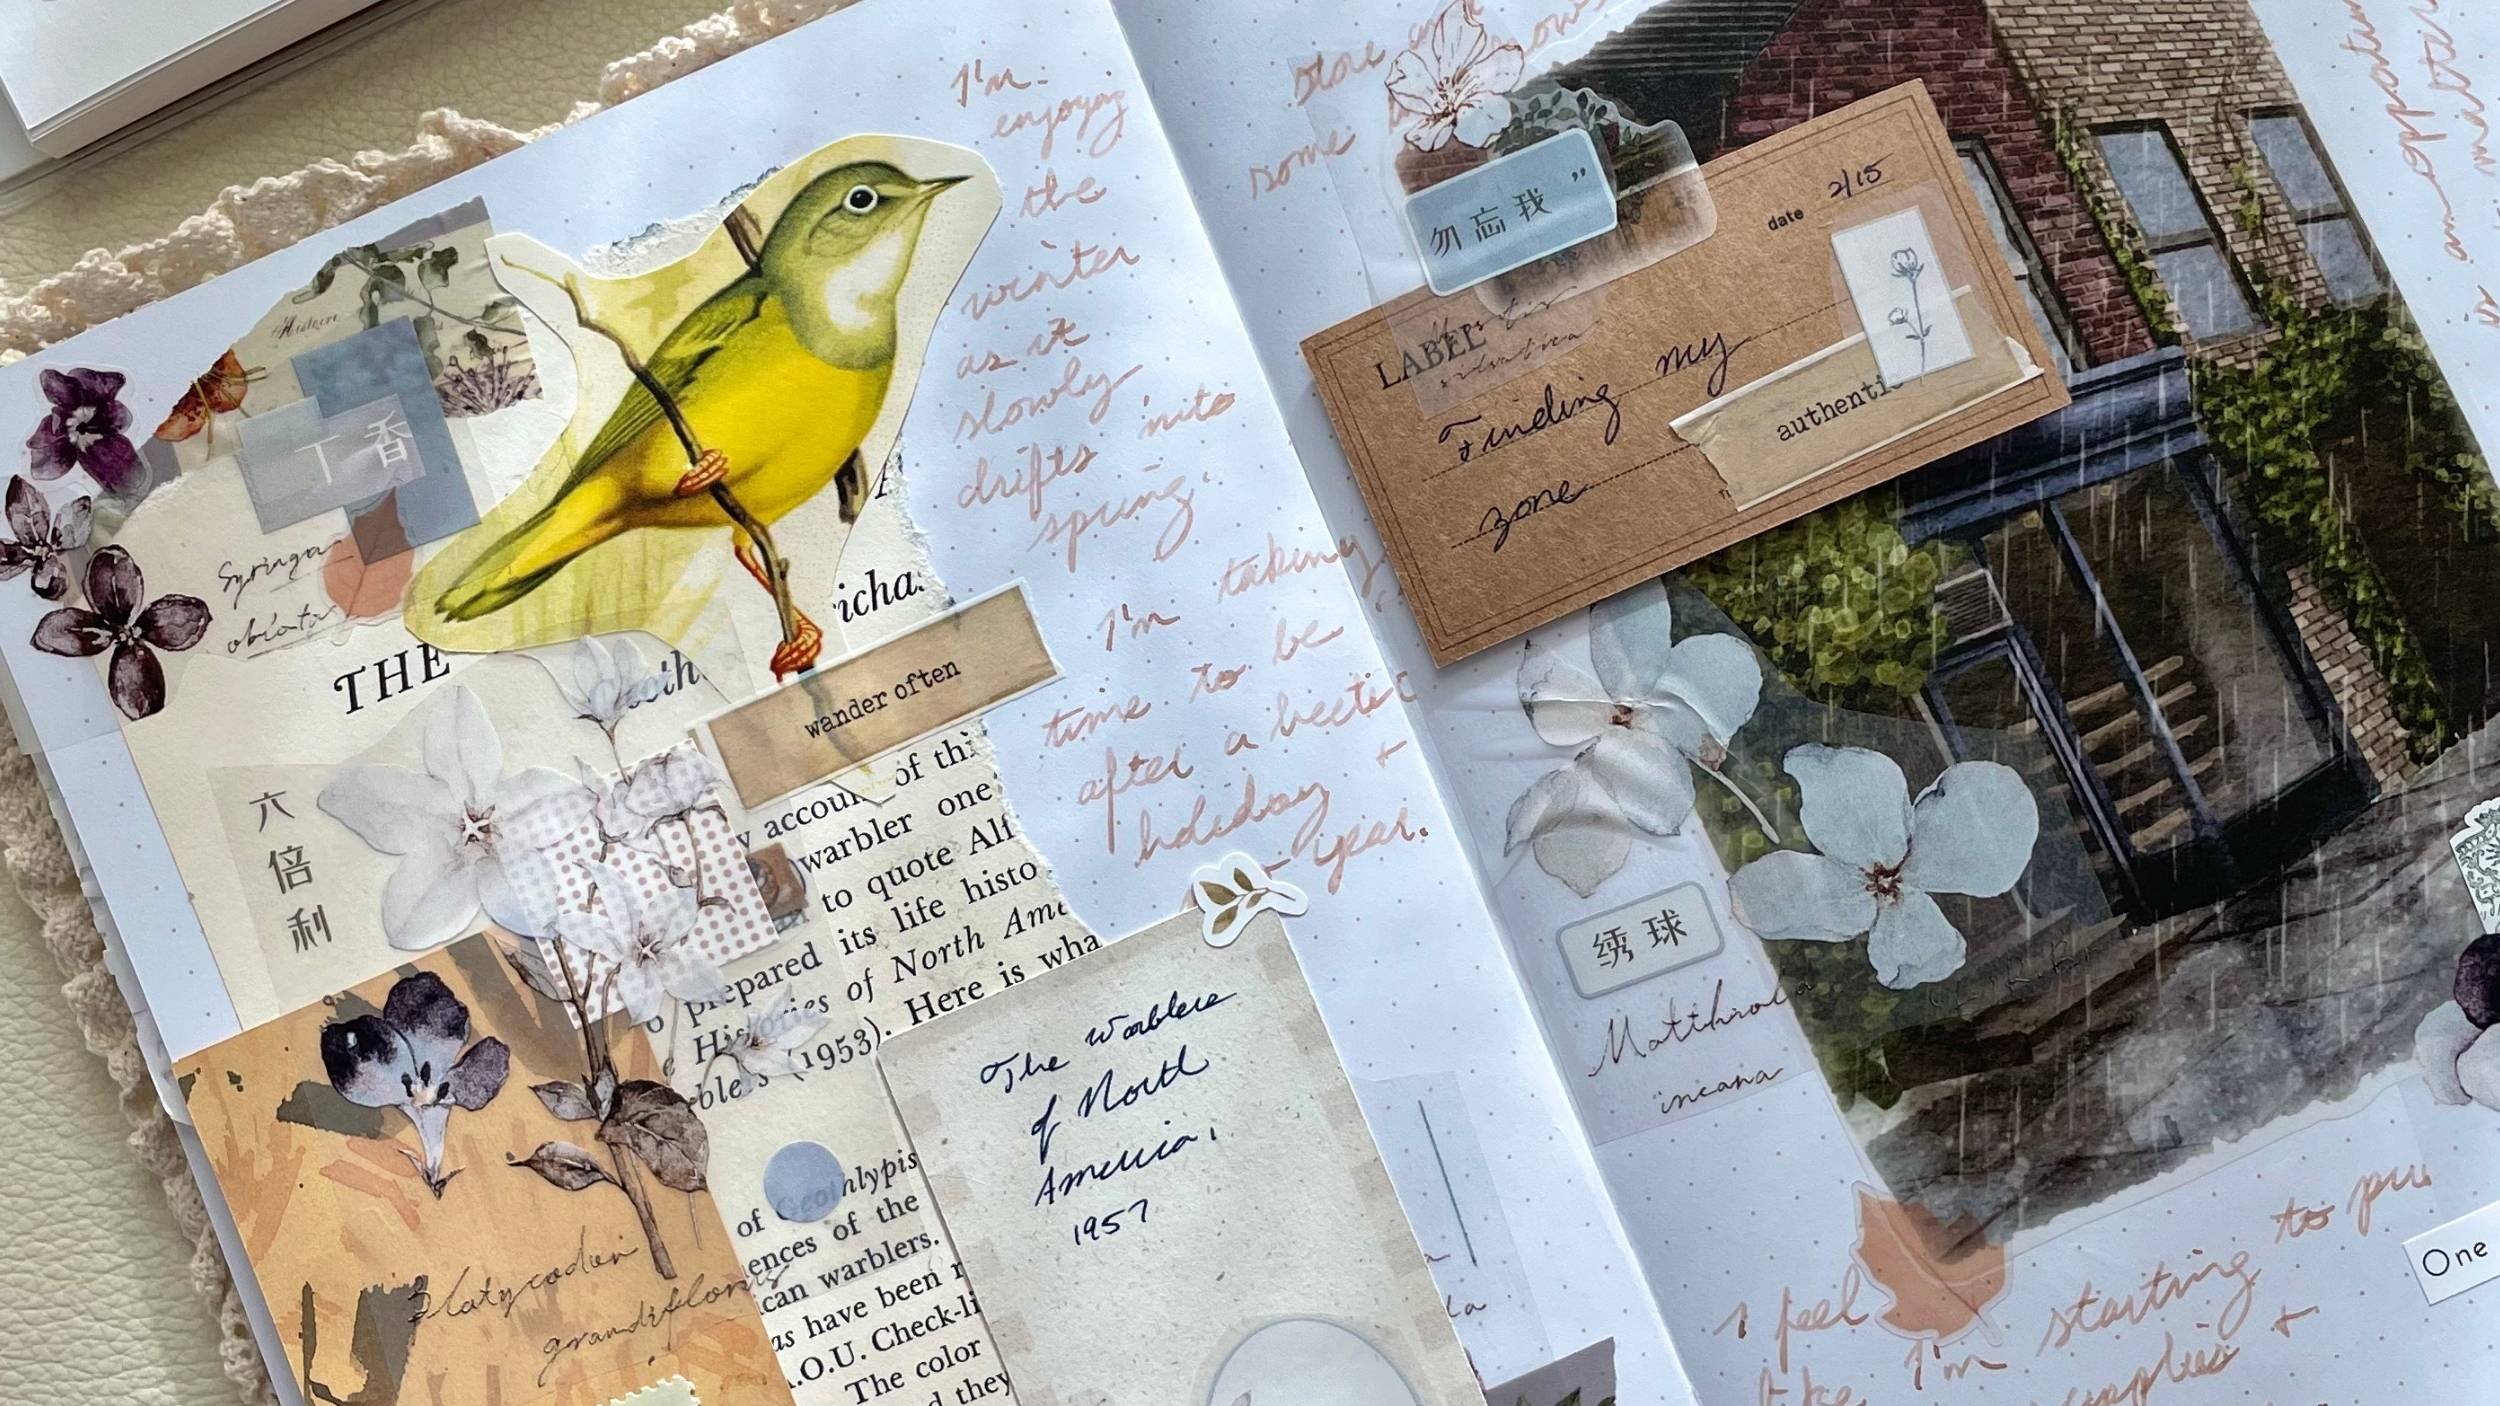 I'm
enjoying
the
winter
as it
slowly
drifts into
spring.
I'm taking
time to be
after a hectic
holiday +
year.
丁香
Syringa
oblata
THE
wander often
of this
warbler one
to quote Alf
its life histo
prepared
of North Ame
(1953). Here is wha
六
倍
利
of
ences of the
can warblers.
as have been
A.O.U. Check-li
The color
they
Platycodon
grandiflorus
The Warblers
of North
America,
1957
store
some
勿忘我”
LABEL
date 2/15
Finding my
zone
authentic
绣球
Matthiola
incana
I feel
like I'm starting to
supplies +
One
an opportun